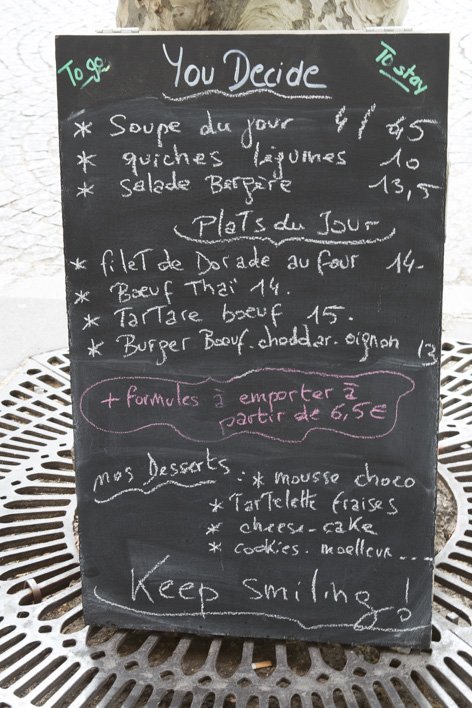 To go
You Decide
To stay
* Soupe du jour 4 / 6,5
* quiches légumes 10
* Salade Bergère 13,5
Plats du Jour
* filet de Dorade au four 14-
* Bœuf Thaï 14.
* Tartare bœuf 15.
* Burger Bœuf.cheddar.oignon 13
+ formules à emporter à
partir de 6,5€
nos Desserts : * mousse choco
* Tartelette fraises
* cheese-cake
* cookies. moelleux....
Keep smiling!